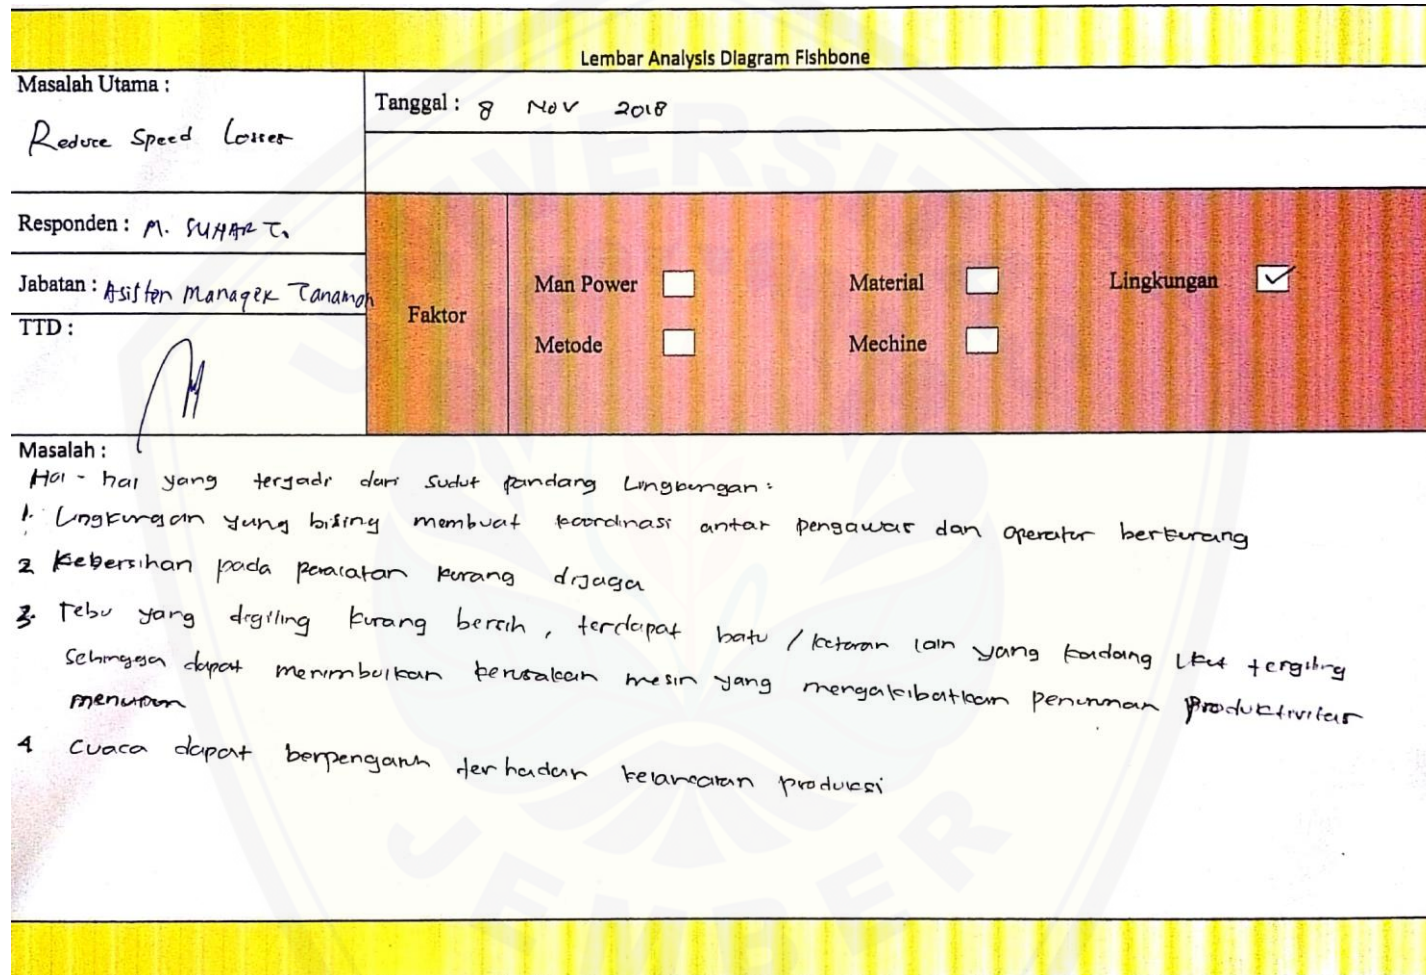 Lembar Analysis Diagram Fishbone
Masalah Utama :
Reduce Speed Losses
Tanggal : 8 Nov 2018
Responden : M. SUHARTO
Jabatan : Asisten Manager Tanaman
TTD :
Faktor
Man Power
Material
Lingkungan ✓
Metode
Mechine
Masalah :
Hal - hal yang terjadi dari sudut pandang Lingkungan :
1. Lingkungan yang bising membuat koordinasi antar pengawas dan operator berkurang
2 Kebersihan pada peralatan kurang dijaga
3. Tebu yang digiling kurang bersih, terdapat batu / kotoran lain yang kadang ikut tergiling
sehingga dapat menimbulkan kerusakan mesin yang mengakibatkan penurunan produktivitas
menurun
4 Cuaca dapat berpengaruh terhadap kelancaran produksi
UNIVERSITAS
JEMBER